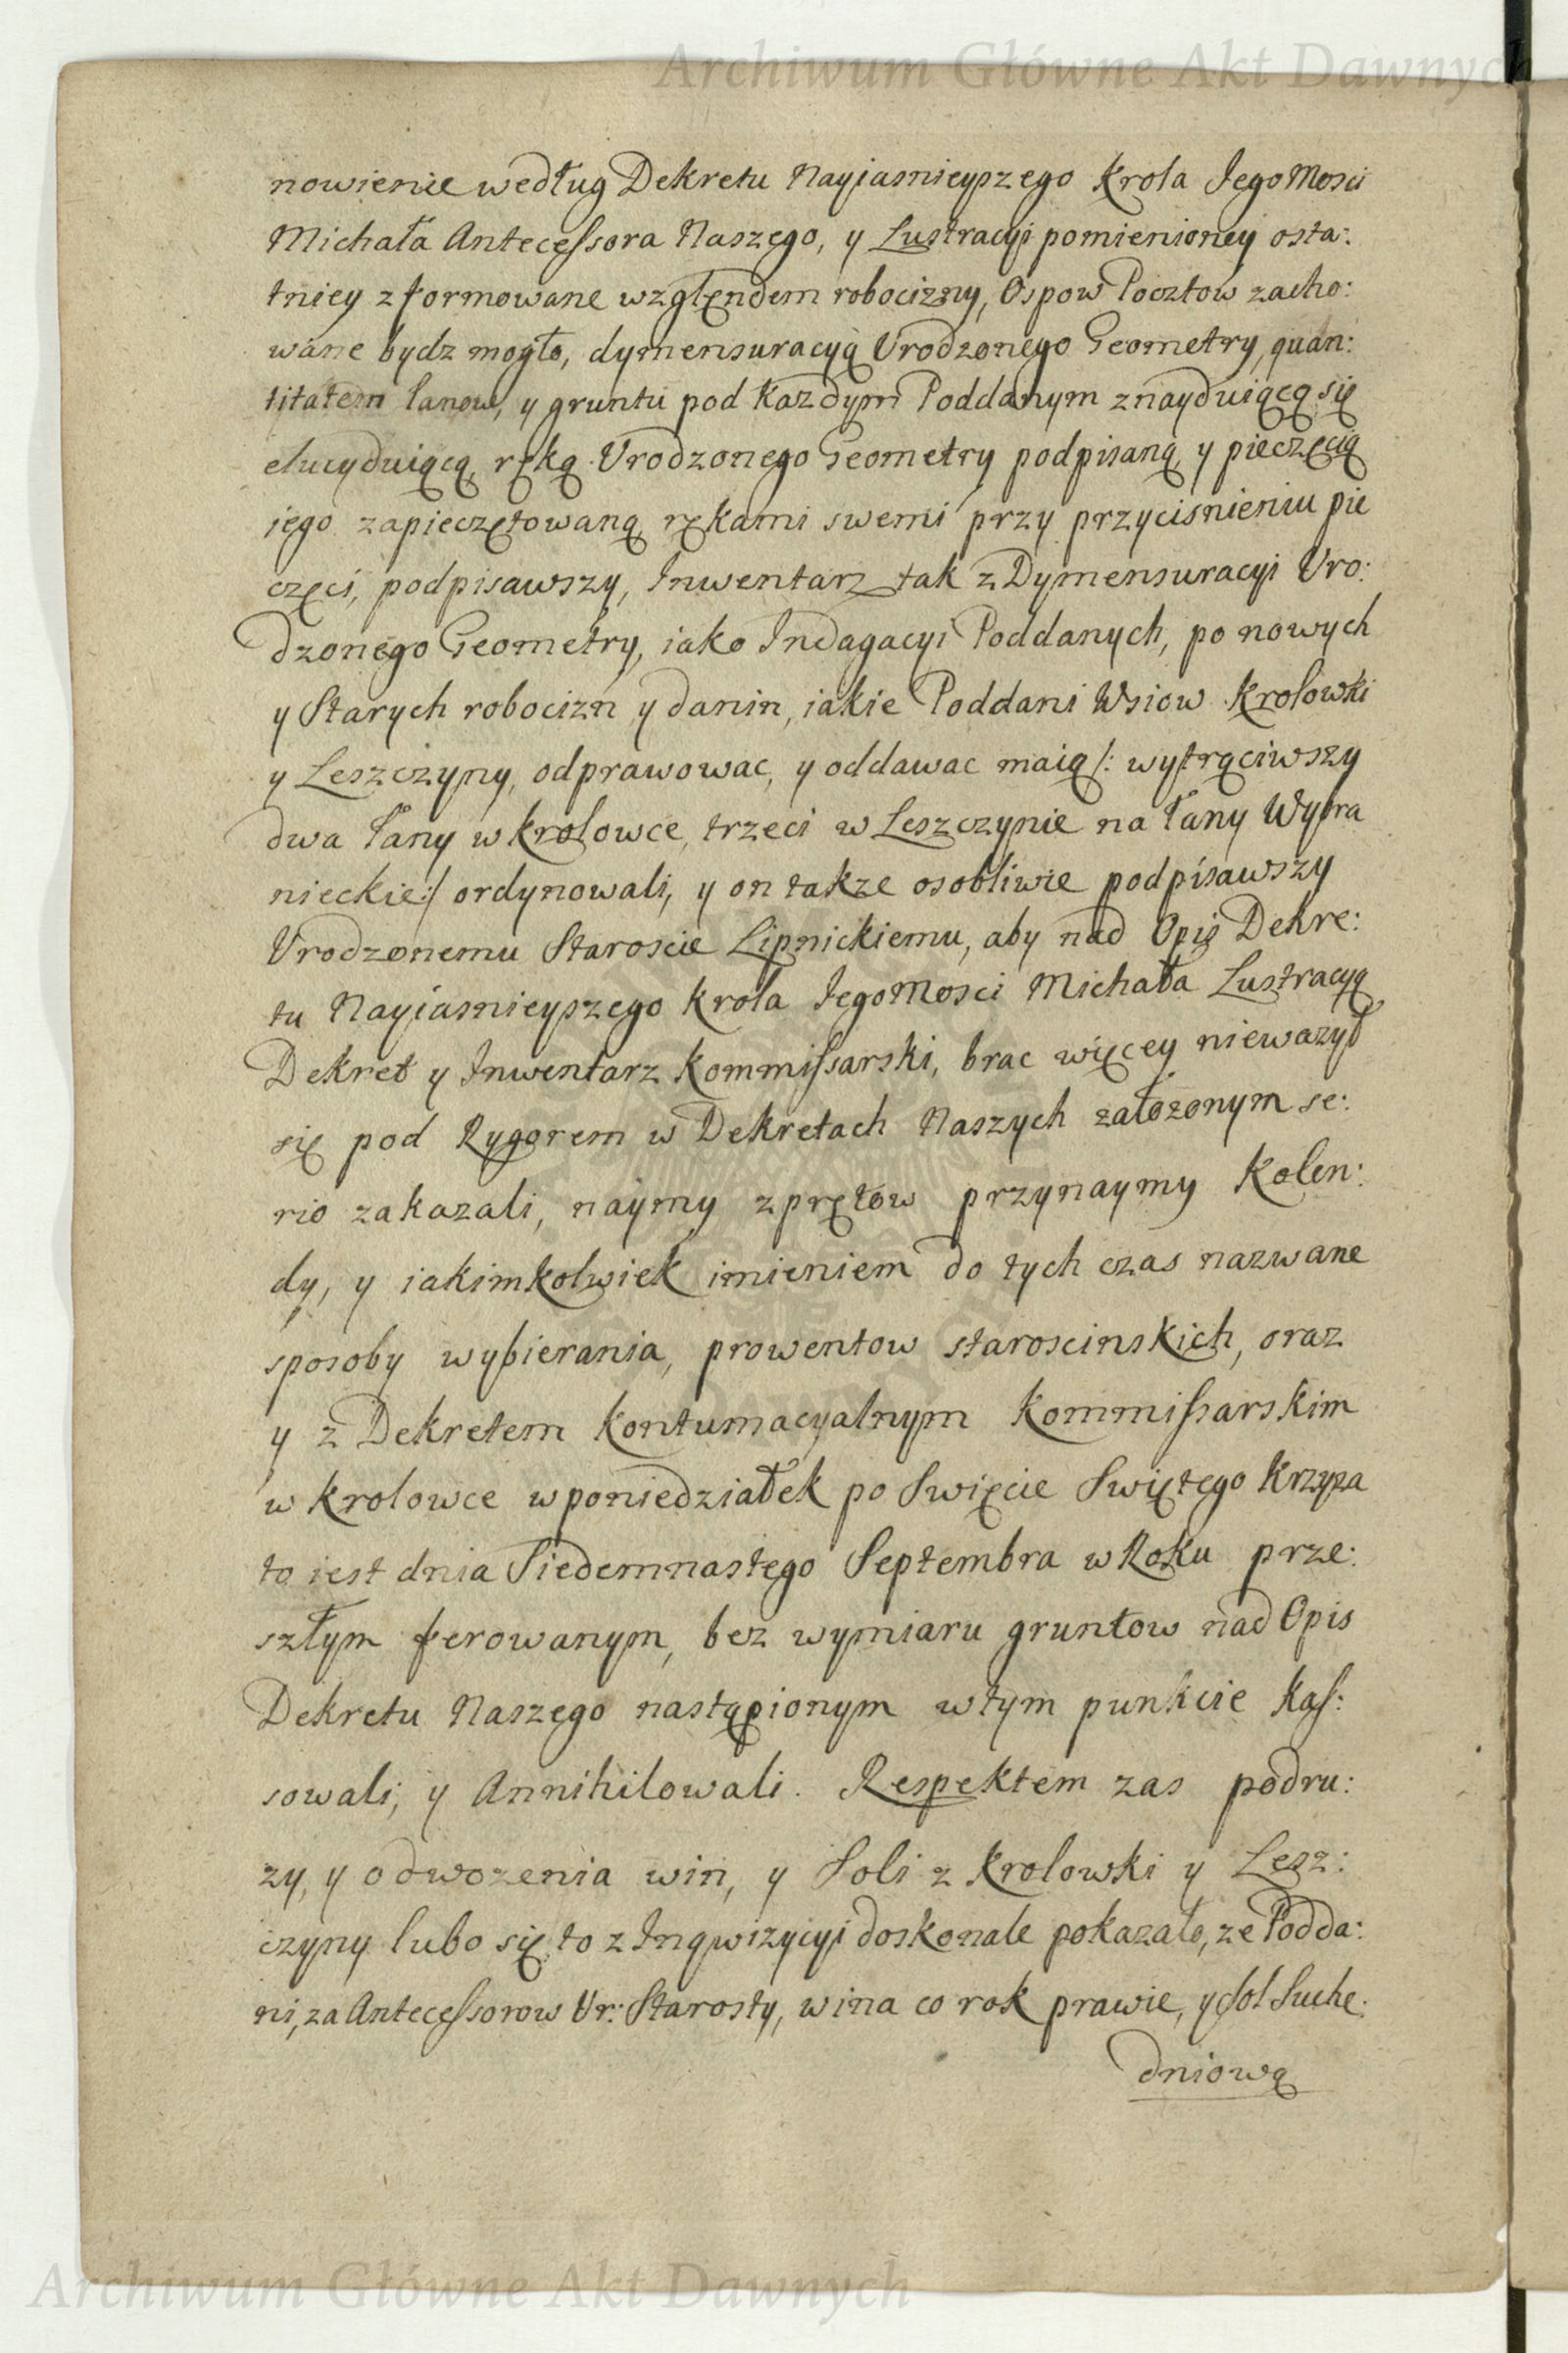 Archiwum Główne Akt Dawnych
nowienie według Dekretu Nayiasnieyszego Krola JegoMosci
Michała Antecessora Naszego, y Lustracyi pomienioney osta:
tniey zformowane względem robocizny, Ospow Pocztow zacho:
wane bydz mogło, dymensuracyą Urodzonego Geometry, quan:
titatem lanow, y gruntu pod Kazdym Poddanym znayduiącą się
elucyduiącą, ręką Urodzonego Geometry podpisaną, y pieczęcią
iego zapieczętowaną rękami swemi przy przycisnieniu pie
częci, podpisawszy, Inwentarz tak z Dymensuracyi Uro:
dzonego Geometry, iako Indagacyi Poddanych, po nowych
y Starych robocizn y danin, iakie Poddani Wsiow Krolowki
y Leszczyny, odprawowac, y oddawac maią /: wytrąciwszy
dwa łany w Krolowce, trzeci w Leszczynie na łany Wybra
nieckie:/ ordynowali, y on takze osobliwie podpisawszy
Urodzonemu Staroscie Lipnickiemu, aby nad Opis Dekre:
tu Nayiasnieyszego Krola JegoMosci Michała Lustracyą
Dekret y Inwentarz Kommissarski, brac więcey niewazył
się pod Rygorem w Dekretach Naszych załozonym se:
rio zakazali, naymy zprętow przynaymy Kolen:
dy, y iakimkolwiek imieniem do tych czas nazwane
sposoby wybierania, prowentow staroscinskich, oraz
y z Dekretem Kontumacyalnym Kommissarskim
w Krolowce wponiedziałek po Swięcie Swiętego Krzyza
to iest dnia Siedemnastego Septembra w Roku prze:
szłym ferowanym, bez wymiaru gruntow nad Opis
Dekretu Naszego nastąpionym wtym punkcie Kas:
sowali, y Annihilowali. Respektem zas podru:
zy, y odwozenia win, y Soli z Krolowki y Lesz:
czyny lubo się to z Inqwizycyi doskonale pokazało, ze Podda:
ni, za Antecessorow Ur: Starosty, wina co rok prawie, y sol Suche:
dniową
Archiwum Główne Akt Dawnych